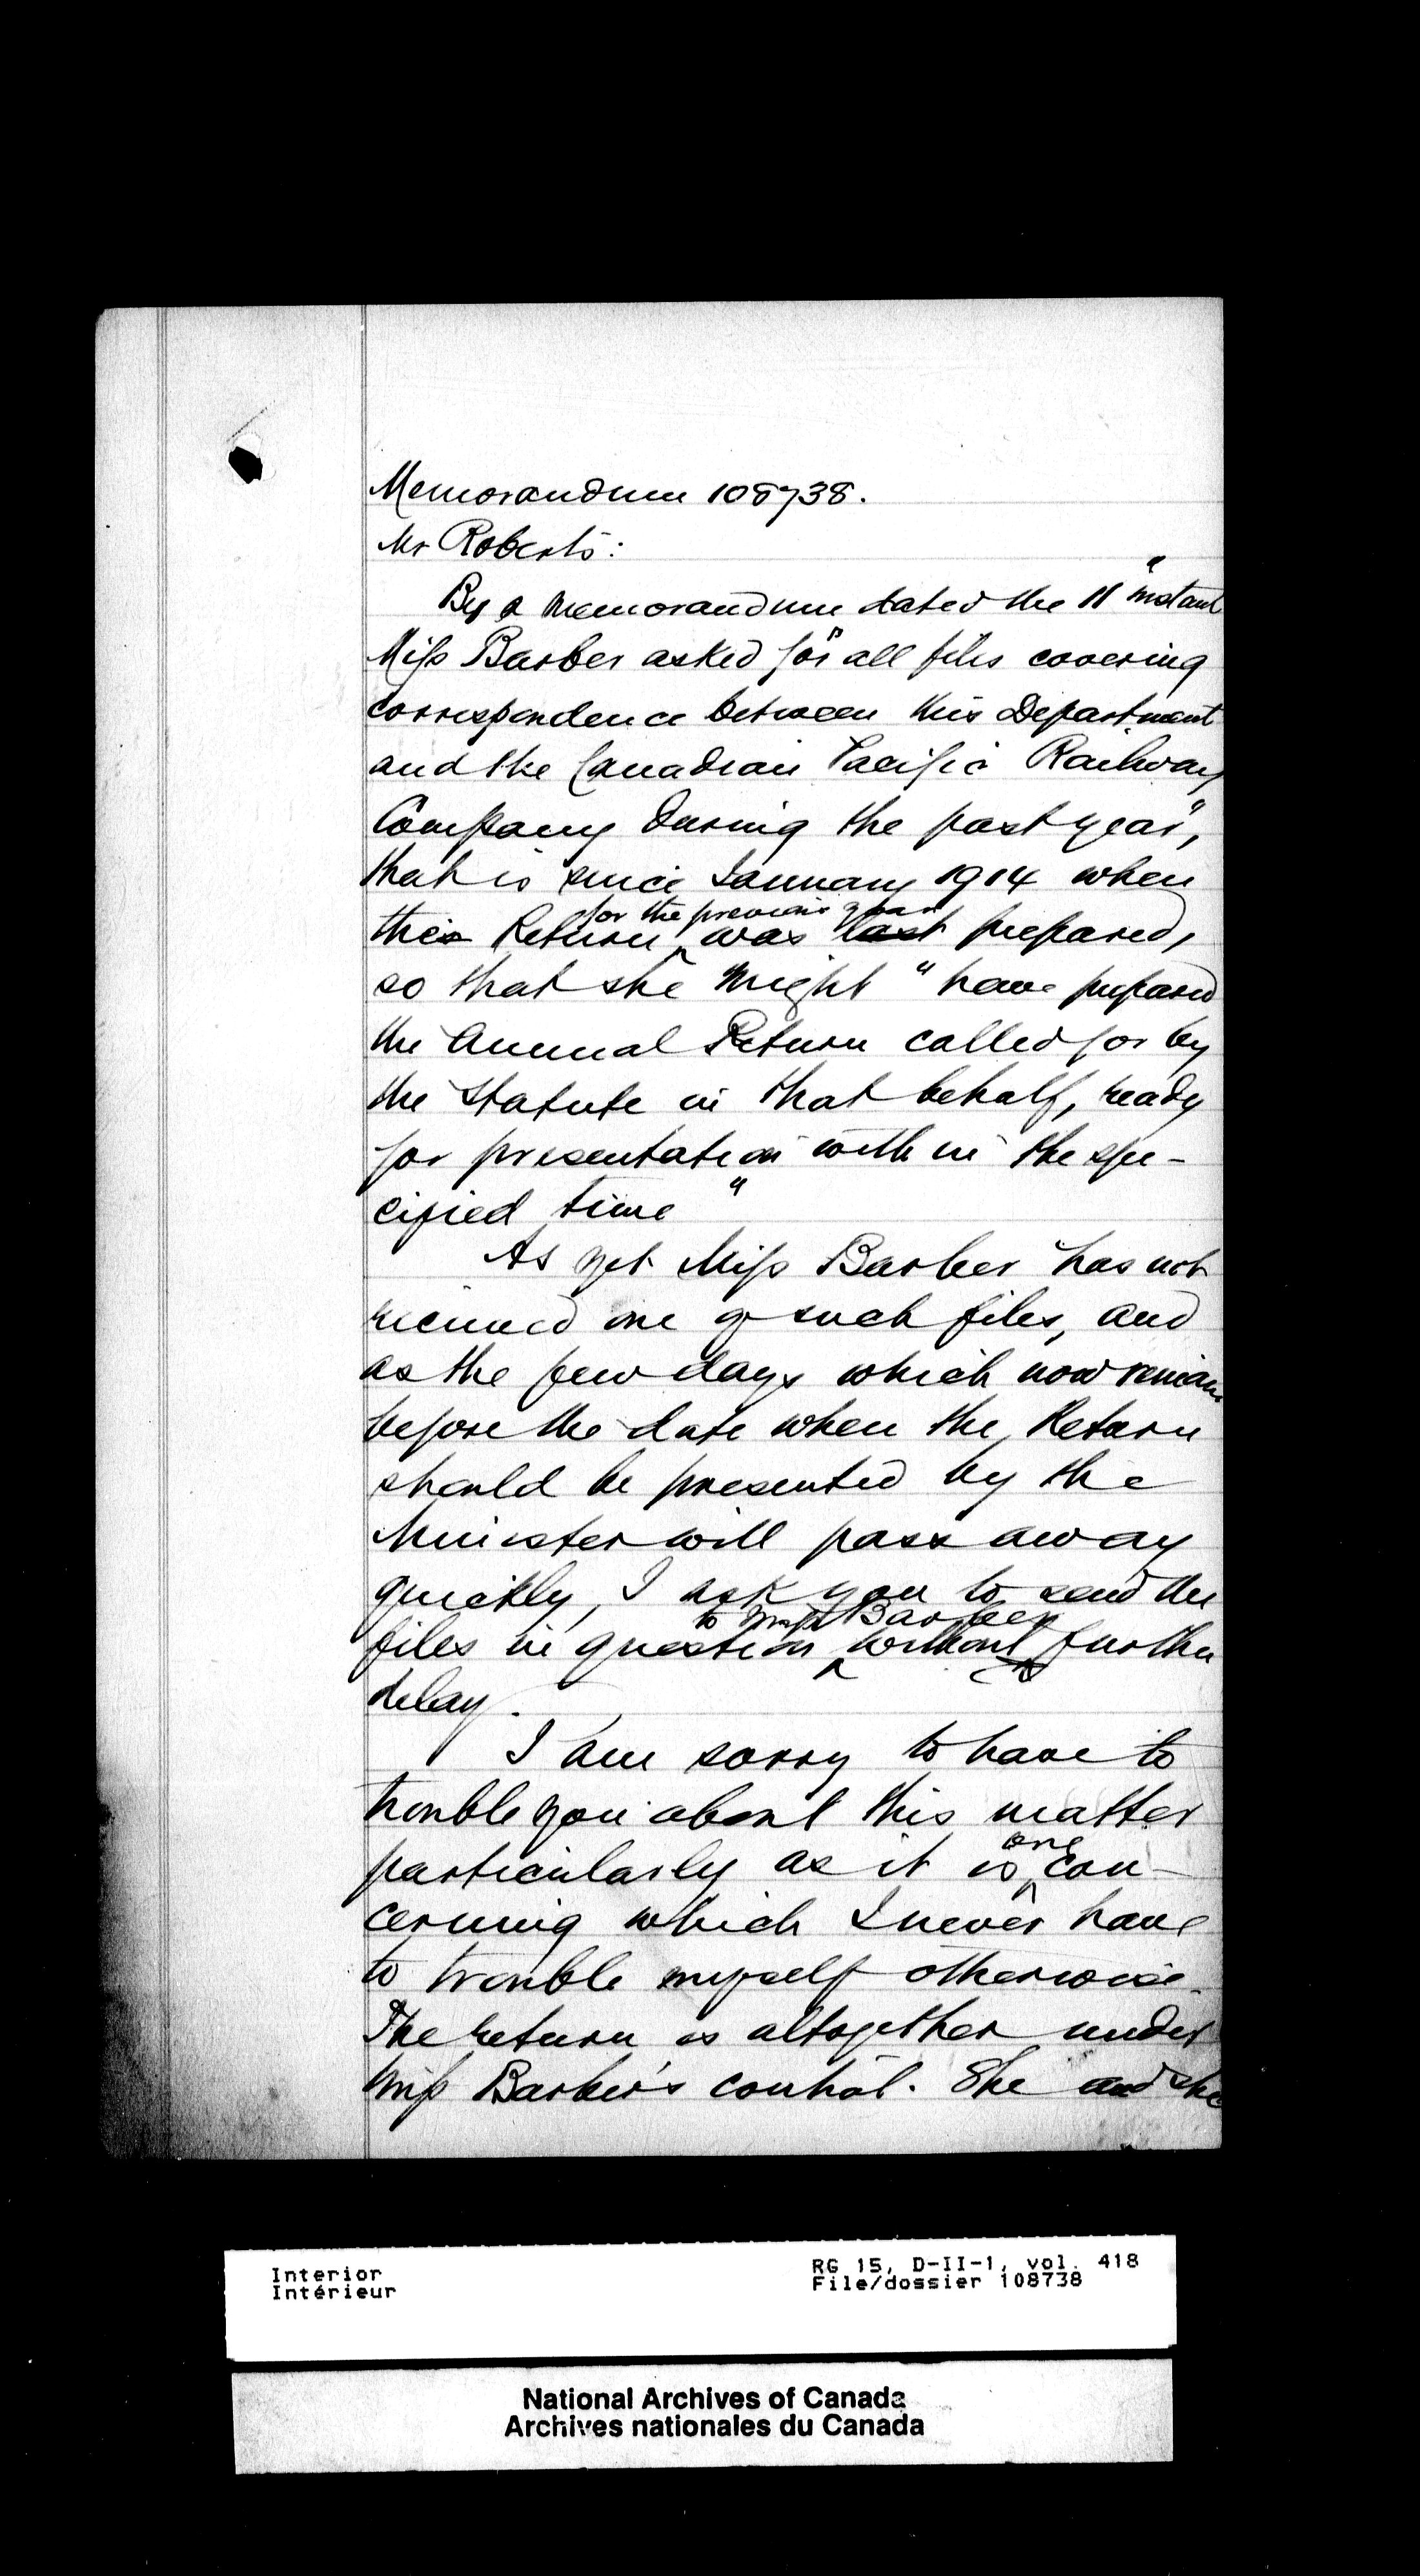 Memorandum 108738.
Mr Roberts:
By a memorandum dated the 11" instant
Miss Barber asked for "all files covering
correspondence between this Department
and the Canadian Pacific Railway
Company during the past year",
that is since January 1914 when
for the previous year
the Return was last prepared,
so that she might "have prepared
the Annual Return called for by
the Statute in that behalf, ready
for presentation within the spe-
cified time"
As yet Miss Barber has not
received one of such files, and
as the few days which now remain
before the date when the Return
should be presented by the
Minister will pass away
quickly, I ask you to send the
to Miss Barber
files in question without further
delay.
I am sorry to have to
trouble you about this matter
particularly as it is one con-
cerning which I never have
to trouble myself otherwise.
The return is altogether under
Miss Barber's control. She and she
Interior
Intérieur
RG 15, D-II-1, vol. 418
File/dossier 108738
National Archives of Canada
Archives nationales du Canada